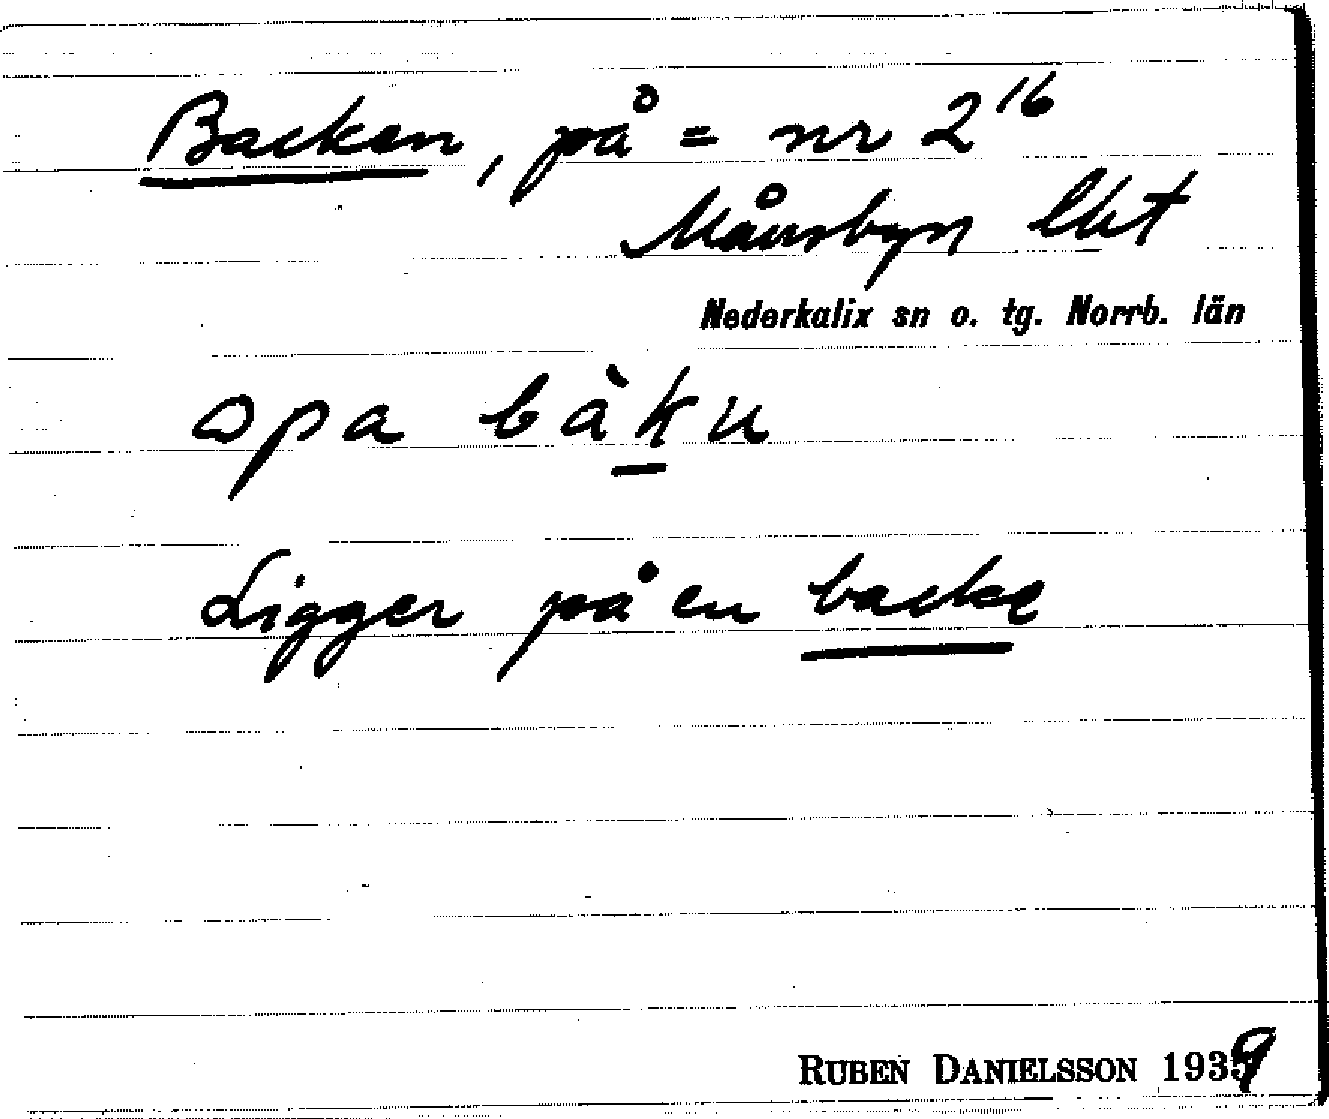 Backen, på = nr 2¹⁶
Månsbyn lkt
Nederkalix sn o. tg. Norrb. län
opa bàku
Ligger på en backe
RUBEN DANIELSSON 1939